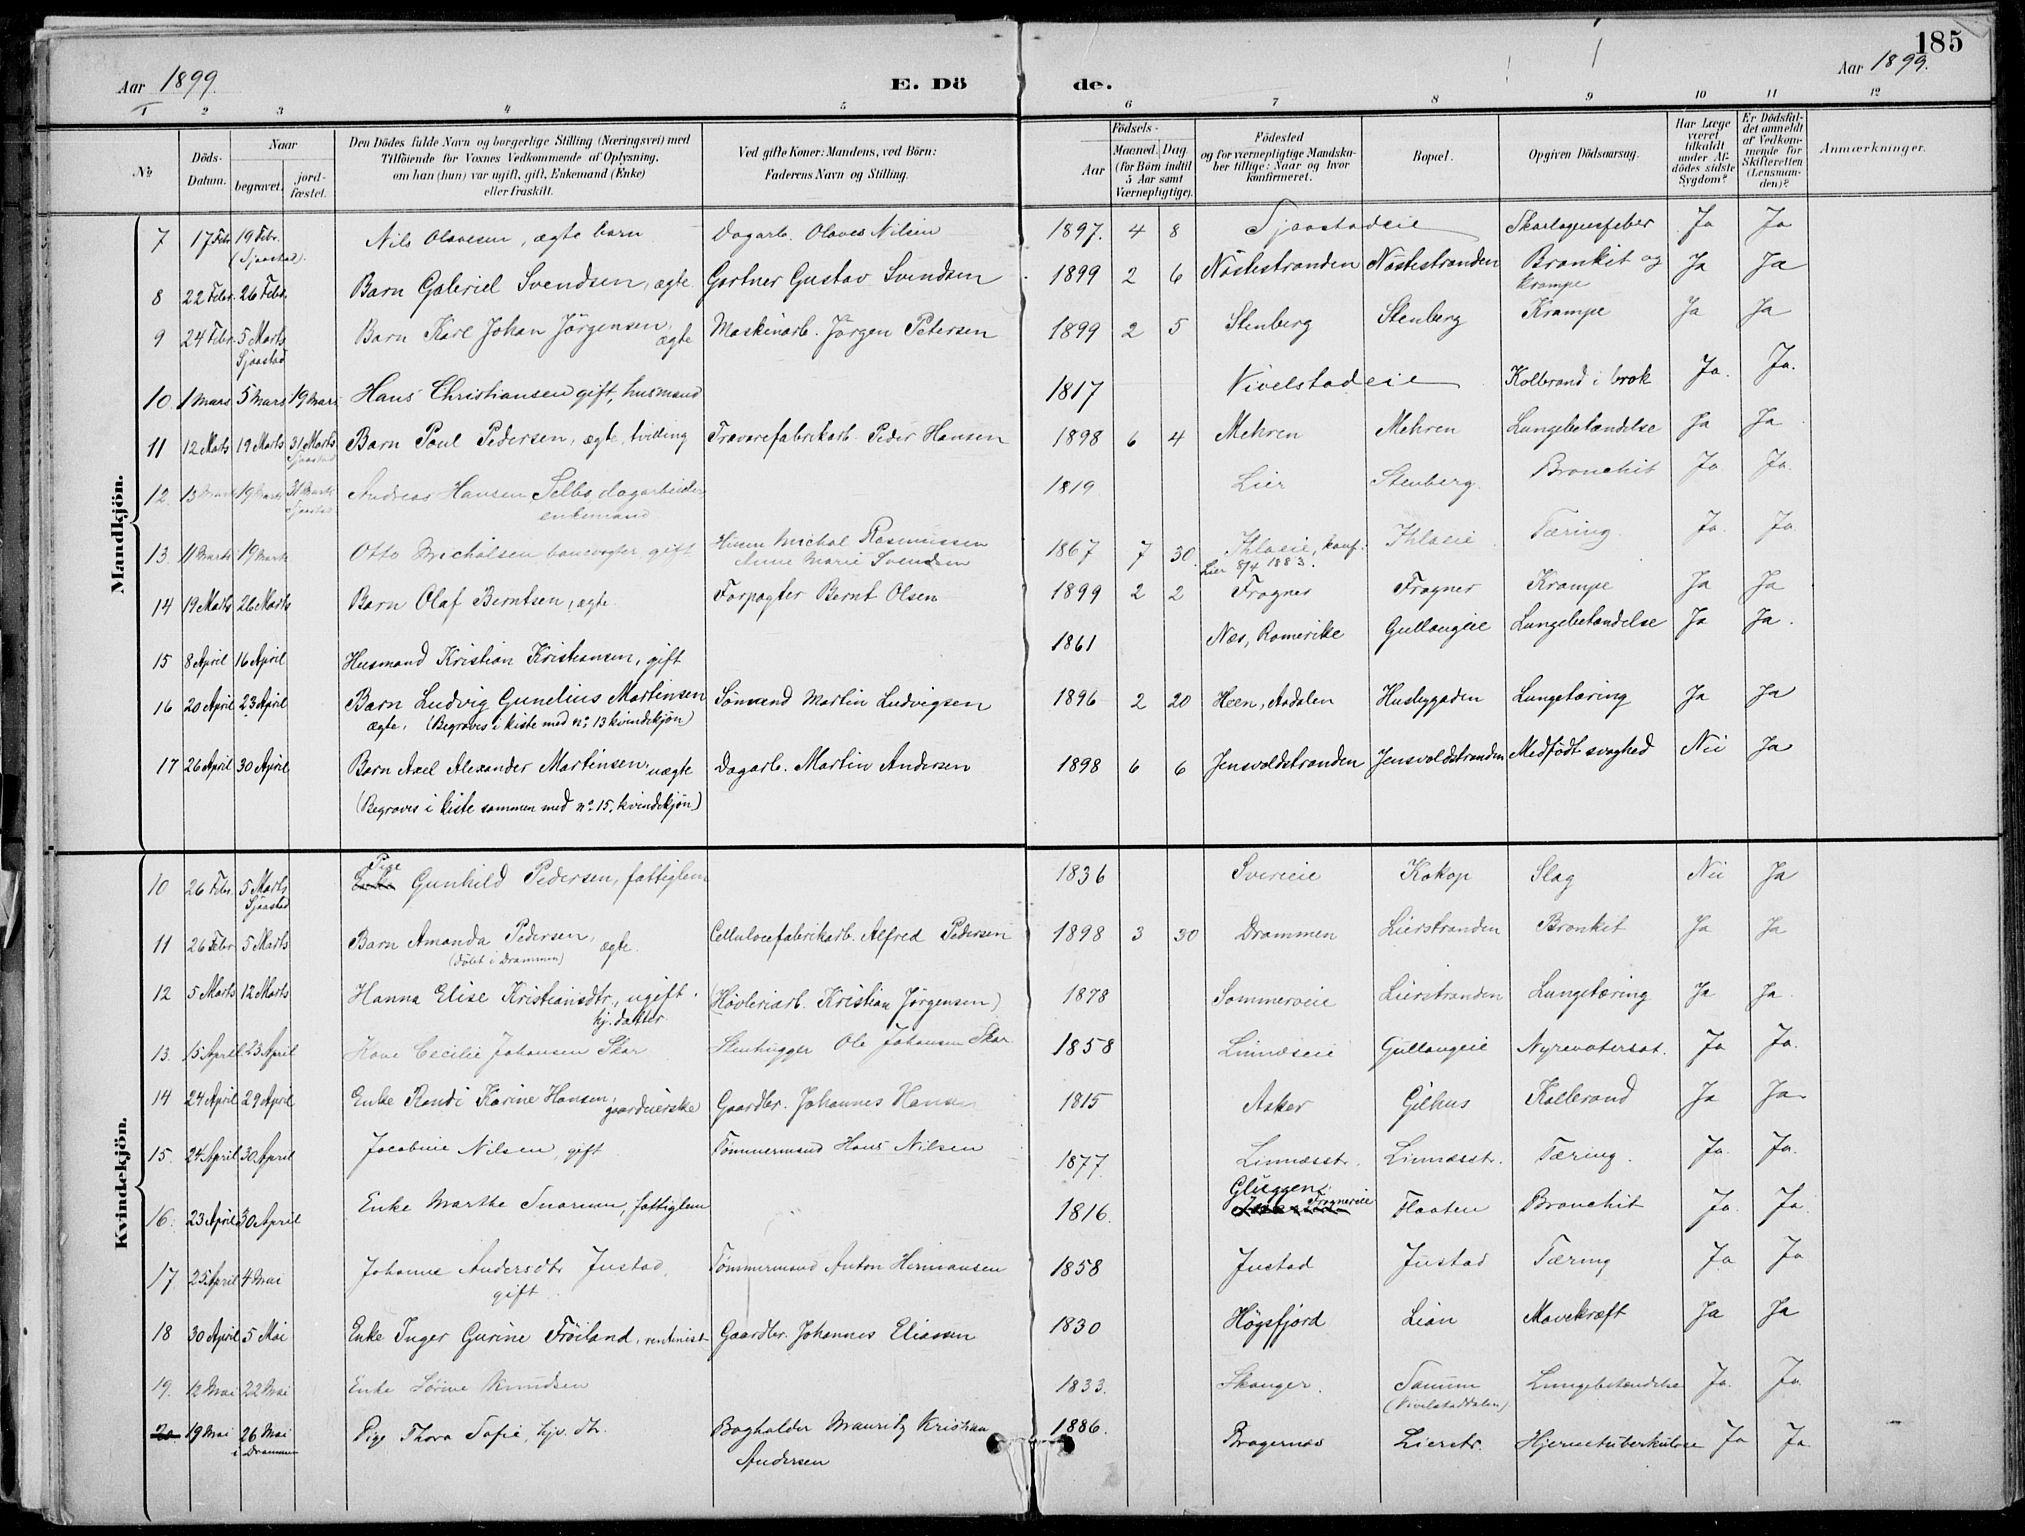 185
Aar 1899.
E. Dö
de.
Aar 1899.
1 2 3 4 5 6 7 8 9 10 11 12
No
Döds-Datum.
Naar
begravet.
jordfæstet.
Den Dödes fulde Navn og borgerlige Stilling (Næringsvei) med
Tilföiende for Voxnes Vedkommende af Oplysning,
om han (hun) var ugift, gift, Enkemand (Enke)
eller fraskilt.
Ved gifte Koner: Mandens, ved Börn:
Faderens Navn og Stilling.
Födsels-
Aar
Maaned. Dag
(for Börn indtil
5 Aar samt
Værnepligtige).
Födested
og for værnepligtige Mandska-
ber tillige: Naar og hvor
konfirmeret.
Bopæl.
Opgiven Dödsaarsag.
Har Læge
været
tilkaldt
under Af-
dödes sidste
Sygdom?
Er Dödsfal-
det anmeldt
af Vedkom-
mende for
Skifteretten
(Lensman-
den)?
Anmærkninger.
Mandkjön.
7 17 Febr 19 Febr. (Sjaastad). Nils Olavesen, ægte barn Dagarb. Olaves Nilsen 1897. 4 8 Sjaastadeie Skarlagensfeber Ja Ja
8 22 Febr. 26 Febr. Barn Gabriel Svendsen, ægte Gartner Gustav Svendsen 1899 2 6 Nöstestranden Nöstestranden Bronkit og krampe Ja Ja
9 24 Febr. 5 Marts Sjaastad Barn Karl Johan Jörgensen, ægte Maskinarb. Jörgen Petersen 1899 2 5 Stenberg Stenberg Krampe Ja Ja
10. 1 Mars 5 Mars 19 Mars Hans Christiansen gift, husmand 1817 Vivelstadeie Kolbrand i brok Ja. Ja.
11 12 Marts 19 Marts 31 Marts Sjaastad Barn Paul Pedersen, ægte, tvilling Trævarefabrikarb. Peder Hansen 1898 6 4 Mehren Mehren Lungebetændelse Ja Ja
12. 13 Marts 19 Marts 31 Marts Sjaastad Andreas Hansen Selbo, dagarbeider, enkemand 1819 Lier Stenberg. Bronchit Ja. Ja.
13. 11 Marts 19 Marts Otto Micholsen banevogter, gift Michal Rasmussen Anne Marie Svendsen 1867 7 30. Ihlaeie, konf. Lier 8/4 1883. Ihlaeie Tæring. Ja. Ja.
14 19 Marts 26 Marts Barn Olaf Berntsen, ægte. Forpagter Bernt Olsen 1899 2 2 Frogner Frogner Krampe Ja Ja
15 8 April 16 April Husmand Kristian Kristiansen, gift 1861 Næs, Romerike Gullaugeie Lungebetændelse Ja Ja.
16 20 April 23 April Barn Ludvig Gunelius Martinsen ægte. (Begraves i kiste med no. 13 kvindekjøn) Sømand Martin Ludvigsen 1896 2 20 Heen, Aadalen Husbygaden Lungetæring Ja Ja
17 26 April 30 April Barn Axel Alexander Martinsen, uægte Dagarb. Martin Andersen 1898 6 6 Jensvoldstranden Jensvoldstranden Medfödt svaghed Nei Ja
(Begraves i kiste sammen med no. 15, kvindekjøn)
Kvindekjön.
10 26 Febr. 5 Marts Sjaastad Pige Gunhild Pedersen, fattiglem 1836 Svereeie Kokop Slag Nei Ja
11 26 Febr 5 Marts Barn Amanda Pedersen, ægte. (døbt i Drammen) Cellulosefabrikarb. Alfred Pedersen 1898 3 30 Drammen Lierstranden Bronkit Ja Ja
12 5 Marts 12 Marts Hanna Elise Kristiansdtr., ugift. hj. datter. (Høvleriarb. Kristian Jørgensen) 1878 Sommerveie Lierstranden Lungetæring Ja Ja.
13. 15 April 23 April Kone Cecilie Johansen Skar Stenhugger Ole Johansen Skar 1858 Linnæseie Gullaugeie Nyrevatersot. Ja Ja.
14 24 April 29 April Enke Randi Karine Hansen, gaardeierske Gaardbr. Johannes Hansen 1815 Asker Gilhus Kolbrand Ja Ja
15. 24 April 30 April Jacobine Nilsen, gift Tømmermand Hans Nilsen 1877. Linnæsstr. Linnæsstr. Tæring. Ja. Ja.
16. 23 April 30 April Enke Marthe fattiglem 1816. Gluggen, Frognereie Flaaten Bronchit Ja. Ja.
17. 25 April 4 Mai Johanne Andersdtr Justad, gift. Tømmermand Anton Hermansen 1858 Justad Justad Tæring Ja Ja
18 30 April 5 Mai Enke Inger Gurine Fröiland, rentenist Gaardbr. Johannes Eliassen 1830 Högsfjord Lian Mavekræft Ja Ja
19. 12 Mai 22 Mai Enke Sørine Knudsen 1833. Skauger. Tanum (Vivelstaddalen) Lungebetændelse Ja. Ja.
20 19 Mai 26 Mai i Drammen Pige Thora Sofie, hjv. dtr. Bogholder Mauritz Kristian Andersen 1886. Bragernæs Lierstr. Hjernetuberkulose Ja Ja.